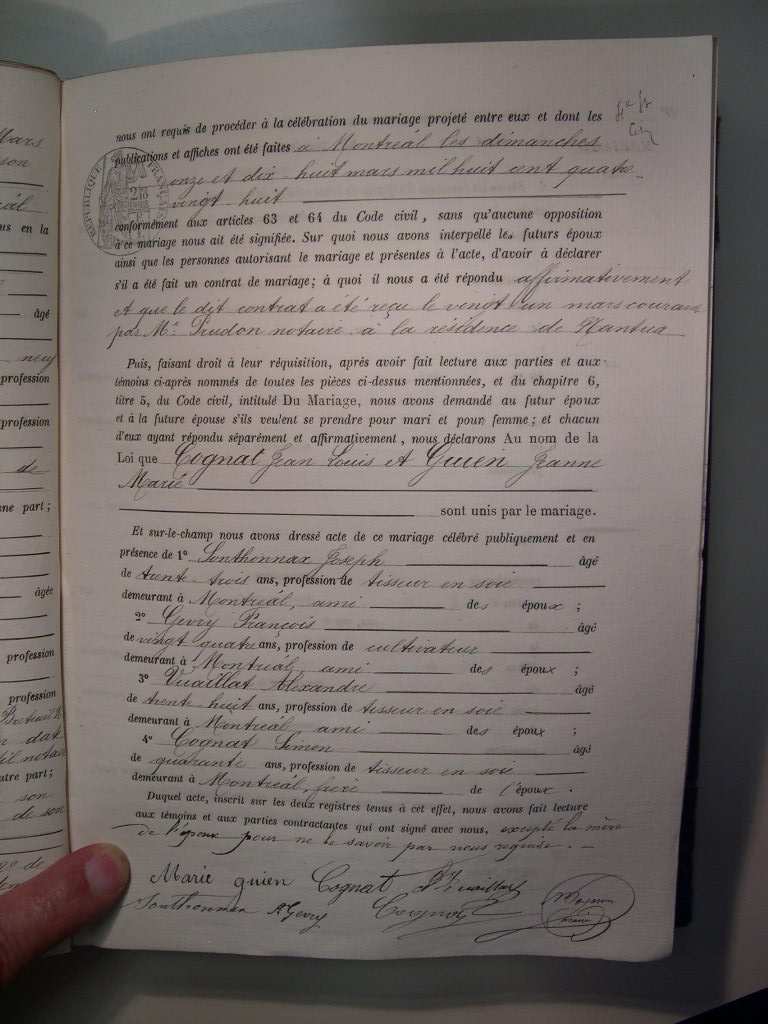 nous ont requis de procéder à la célébration du mariage projeté entre eux et dont les
publications et affiches ont été faites à Montréal les dimanches
onze et dix-huit mars mil huit cent quatre
vingt huit
conformément aux articles 63 et 64 du Code civil, sans qu'aucune opposition
à ce mariage nous ait été signifiée. Sur quoi nous avons interpellé les futurs époux
ainsi que les personnes autorisant le mariage et présentes à l'acte, d'avoir à déclarer
s'il a été fait un contrat de mariage; à quoi il nous a été répondu affirmativement
et que le dit contrat a été reçu le vingt un mars courant
par Me Prudon notaire à la résidence de Nantua
Puis, faisant droit à leur réquisition, après avoir fait lecture aux parties et aux
témoins ci-après nommés de toutes les pièces ci-dessus mentionnées, et du chapitre 6,
titre 5, du Code civil, intitulé Du Mariage, nous avons demandé au futur époux
et à la future épouse s'ils veulent se prendre pour mari et pour femme; et chacun
d'eux ayant répondu séparément et affirmativement, nous déclarons Au nom de la
Loi que Cognat Jean Louis et Guien Jeanne
Marie
sont unis par le mariage.
Et sur-le-champ nous avons dressé acte de ce mariage célébré publiquement et en
présence de 1° Sonthonnax Joseph âgé
de trente trois ans, profession de tisseur en soie
demeurant à Montréal, ami des époux;
2° Gevry François âgé
de vingt quatre ans, profession de cultivateur
demeurant à Montréal, ami des époux;
3° Vuaillat Alexandre âgé
de trente huit ans, profession de tisseur en soie
demeurant à Montréal ami des époux;
4° Cognat Simon âgé
de quarante ans, profession de tisseur en soie
demeurant à Montréal, frère de l'époux.
Duquel acte, inscrit sur les deux registres tenus à cet effet, nous avons fait lecture
aux témoins et aux parties contractantes qui ont signé avec nous, excepté la mère
de l'époux pour ne le savoir par nous requise.
Marie guien Cognat Vuaillat
Sonthonnax F. Gevry Cognat
RÉPUBLIQUE FRANÇAISE
Mars
son
us en la
âgé
profession
profession
de
ne part;
âgée
profession
profession
notaire
utre part;
son
de son
de